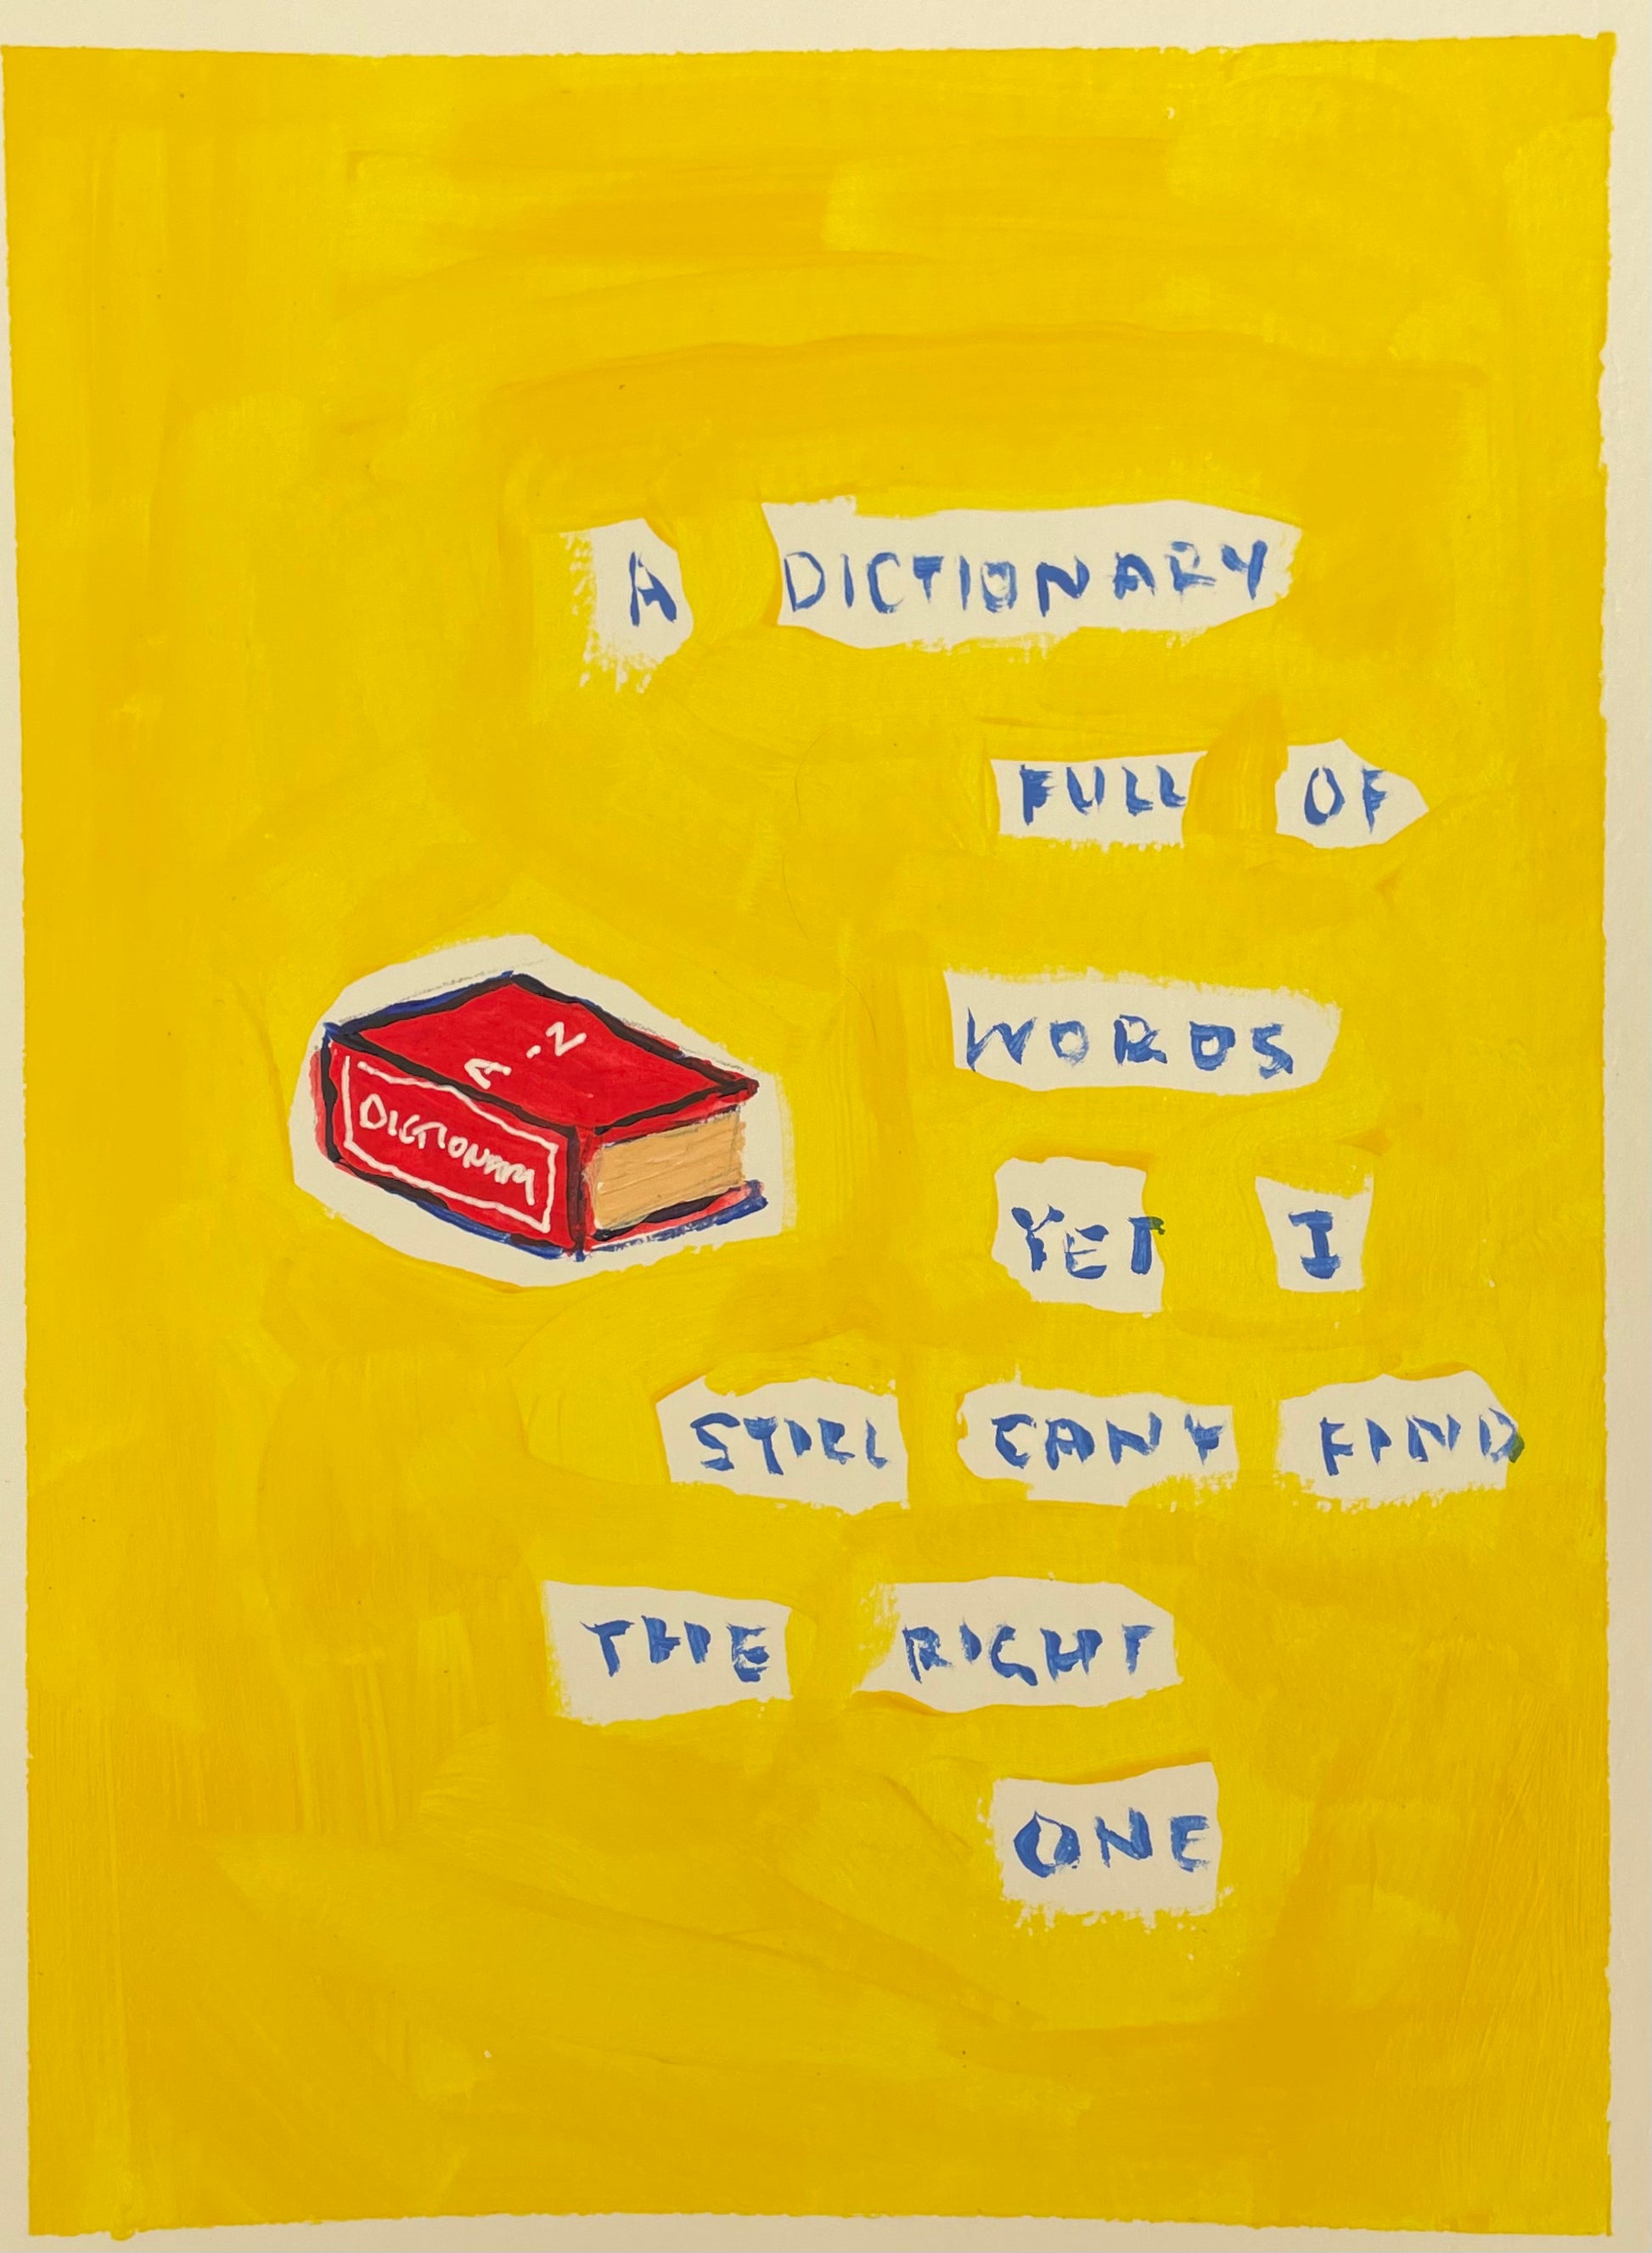 A DICTIONARY
FULL OF
WORDS
A-Z
DICTIONARY
YET I
STILL CANT FIND
THE RIGHT
ONE